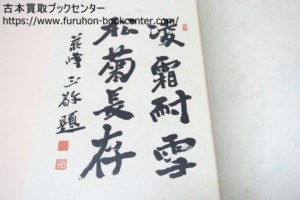 古本買取ブックセンター
https://www.furuhon-bookcenter.com/
凌霜耐雪
松菊長存